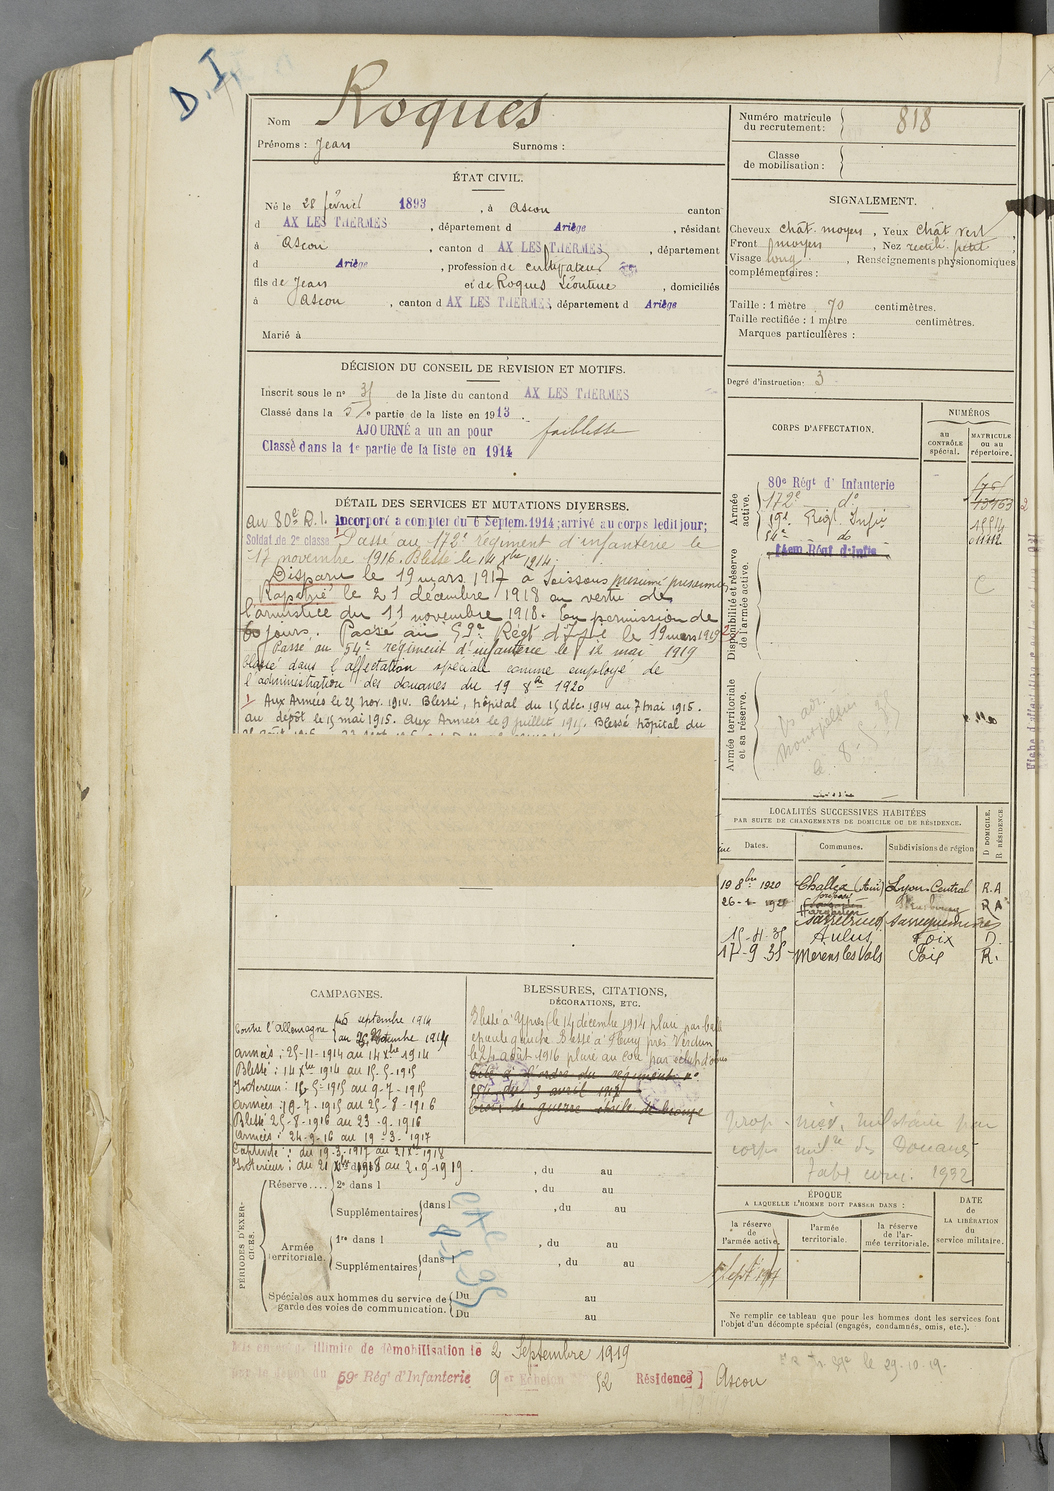 D.I
Nom Roques
Prénoms : Jean Surnoms :
Numéro matricule du recrutement : 818
Classe de mobilisation :
ÉTAT CIVIL.
Né le 28 février 1893, à Ascou canton
d AX LES THERMES, département d Ariège, résidant
à Ascou, canton d AX LES THERMES, département
d Ariège, profession de cultivateur
fils de Jean et de Roques Léontine, domiciliés
à Ascou, canton d AX LES THERMES, département d Ariège
Marié à
SIGNALEMENT.
Cheveux chât. moyen, Yeux chât vert,
Front moyen, Nez rectil. petit
Visage long. Renseignements physionomiques
complémentaires :
Taille : 1 mètre 70 centimètres.
Taille rectifiée : 1 mètre centimètres.
Marques particulières :
Degré d'instruction : 3
DÉCISION DU CONSEIL DE RÉVISION ET MOTIFS.
Inscrit sous le nº 31 de la liste du canton d AX LES THERMES
Classé dans la 5e partie de la liste en 1913.
AJOURNÉ a un an pour faiblesse
Classé dans la 1e partie de la liste en 1914
CORPS D'AFFECTATION.
NUMÉROS
au CONTRÔLE spécial.
MATRICULE ou au répertoire.
Armée active.
80e Régt d'Infanterie
172e do
59e Régt Infie
54e do
Disponibilité et réserve de l'armée active.
Armée territoriale et sa réserve.
Montpellier
le 8-5-35
DÉTAIL DES SERVICES ET MUTATIONS DIVERSES.
au 80e R.I. Incorporé a compter du 6 Septem. 1914; arrivé au corps ledit jour;
Soldat de 2e classe. Passé au 172e régiment d'infanterie le
17 novembre 1916. Blessé le 14 Xbre 1914.
Disparu le 19 mars 1917 à Soissons présumé prisonnier
Rapatrié le 21 décembre 1918 en vertu de
l'armistice du 11 novembre 1918. En permission de
60 jours. Passé au 59e Régt d'Infie le 19 mars 1919
Passé au 54e régiment d'infanterie le 12 mai 1919
Classé dans l'affectation spéciale comme employé de
l'administration des douanes du 19 8bre 1920
Aux Armées le 25 Nov. 1914. Blessé, hôpital du 15 déc. 1914 au 7 mai 1915.
au dépôt le 15 mai 1915. Aux Armées le 9 juillet 1915. Blessé hôpital du
LOCALITÉS SUCCESSIVES HABITÉES
PAR SUITE DE CHANGEMENTS DE DOMICILE OU DE RÉSIDENCE.
Dates. Communes. Subdivisions de région D DOMICILE. R RÉSIDENCE
19 8bre 1920 Challex (Ain) Lyon-Central R.A
Hargarten
Sarrebruck Sarreguemines
15-4-35 Aulus Foix D.
17-9-35 Merens les Vals Foix R.
CAMPAGNES.
Contre l'Allemagne
du 6 septembre 1914
Armées : 25-11-1914 au 14 Xbre 1914
Blessé : 14 Xbre 1914 au 15-5-1915
Intérieur : 15-5-1915 au 9-7-1915
Armées : 9-7-1915 au 25-8-1916
Blessé 25-8-1916 au 23-9-1916
Armées : 24-9-16 au 19-3-1917
Captivité : du 19-3-1917 au 21 Xbre 1918
Intérieur : du 21 Xbre 1918 au 2-9-1919.
BLESSURES, CITATIONS,
DÉCORATIONS, ETC.
Blessé à Ypres le 14 décembre 1914 plaie par balle
épaule gauche. Blessé à Fleury près Verdun
le 24 août 1916 plaie au cou par éclat d'obus
Cité à l'ordre du régiment nº
du 3 avril 1917
Croix de guerre étoile de bronze
Douanes
1932
PÉRIODES D'EXERCICES.
Réserve....
2e dans l , du au
Supplémentaires dans l , du au
Armée territoriale.
1re dans l , du au
Supplémentaires dans l , du au
Spéciales aux hommes du service de garde des voies de communication.
Du au
Du au
ÉPOQUE
A LAQUELLE L'HOMME DOIT PASSER DANS :
la réserve de l'armée active.
l'armée territoriale.
la réserve de l'armée territoriale.
DATE de LA LIBÉRATION du service militaire.
Ne remplir ce tableau que pour les hommes dont les services font
l'objet d'un décompte spécial (engagés, condamnés, omis, etc.).
Mis en congé illimité de démobilisation le 2 Septembre 1919
par le dépôt du 59e Régt d'Infanterie 9er Echelon 52 Résidence] Ascou
le 29.10.19.